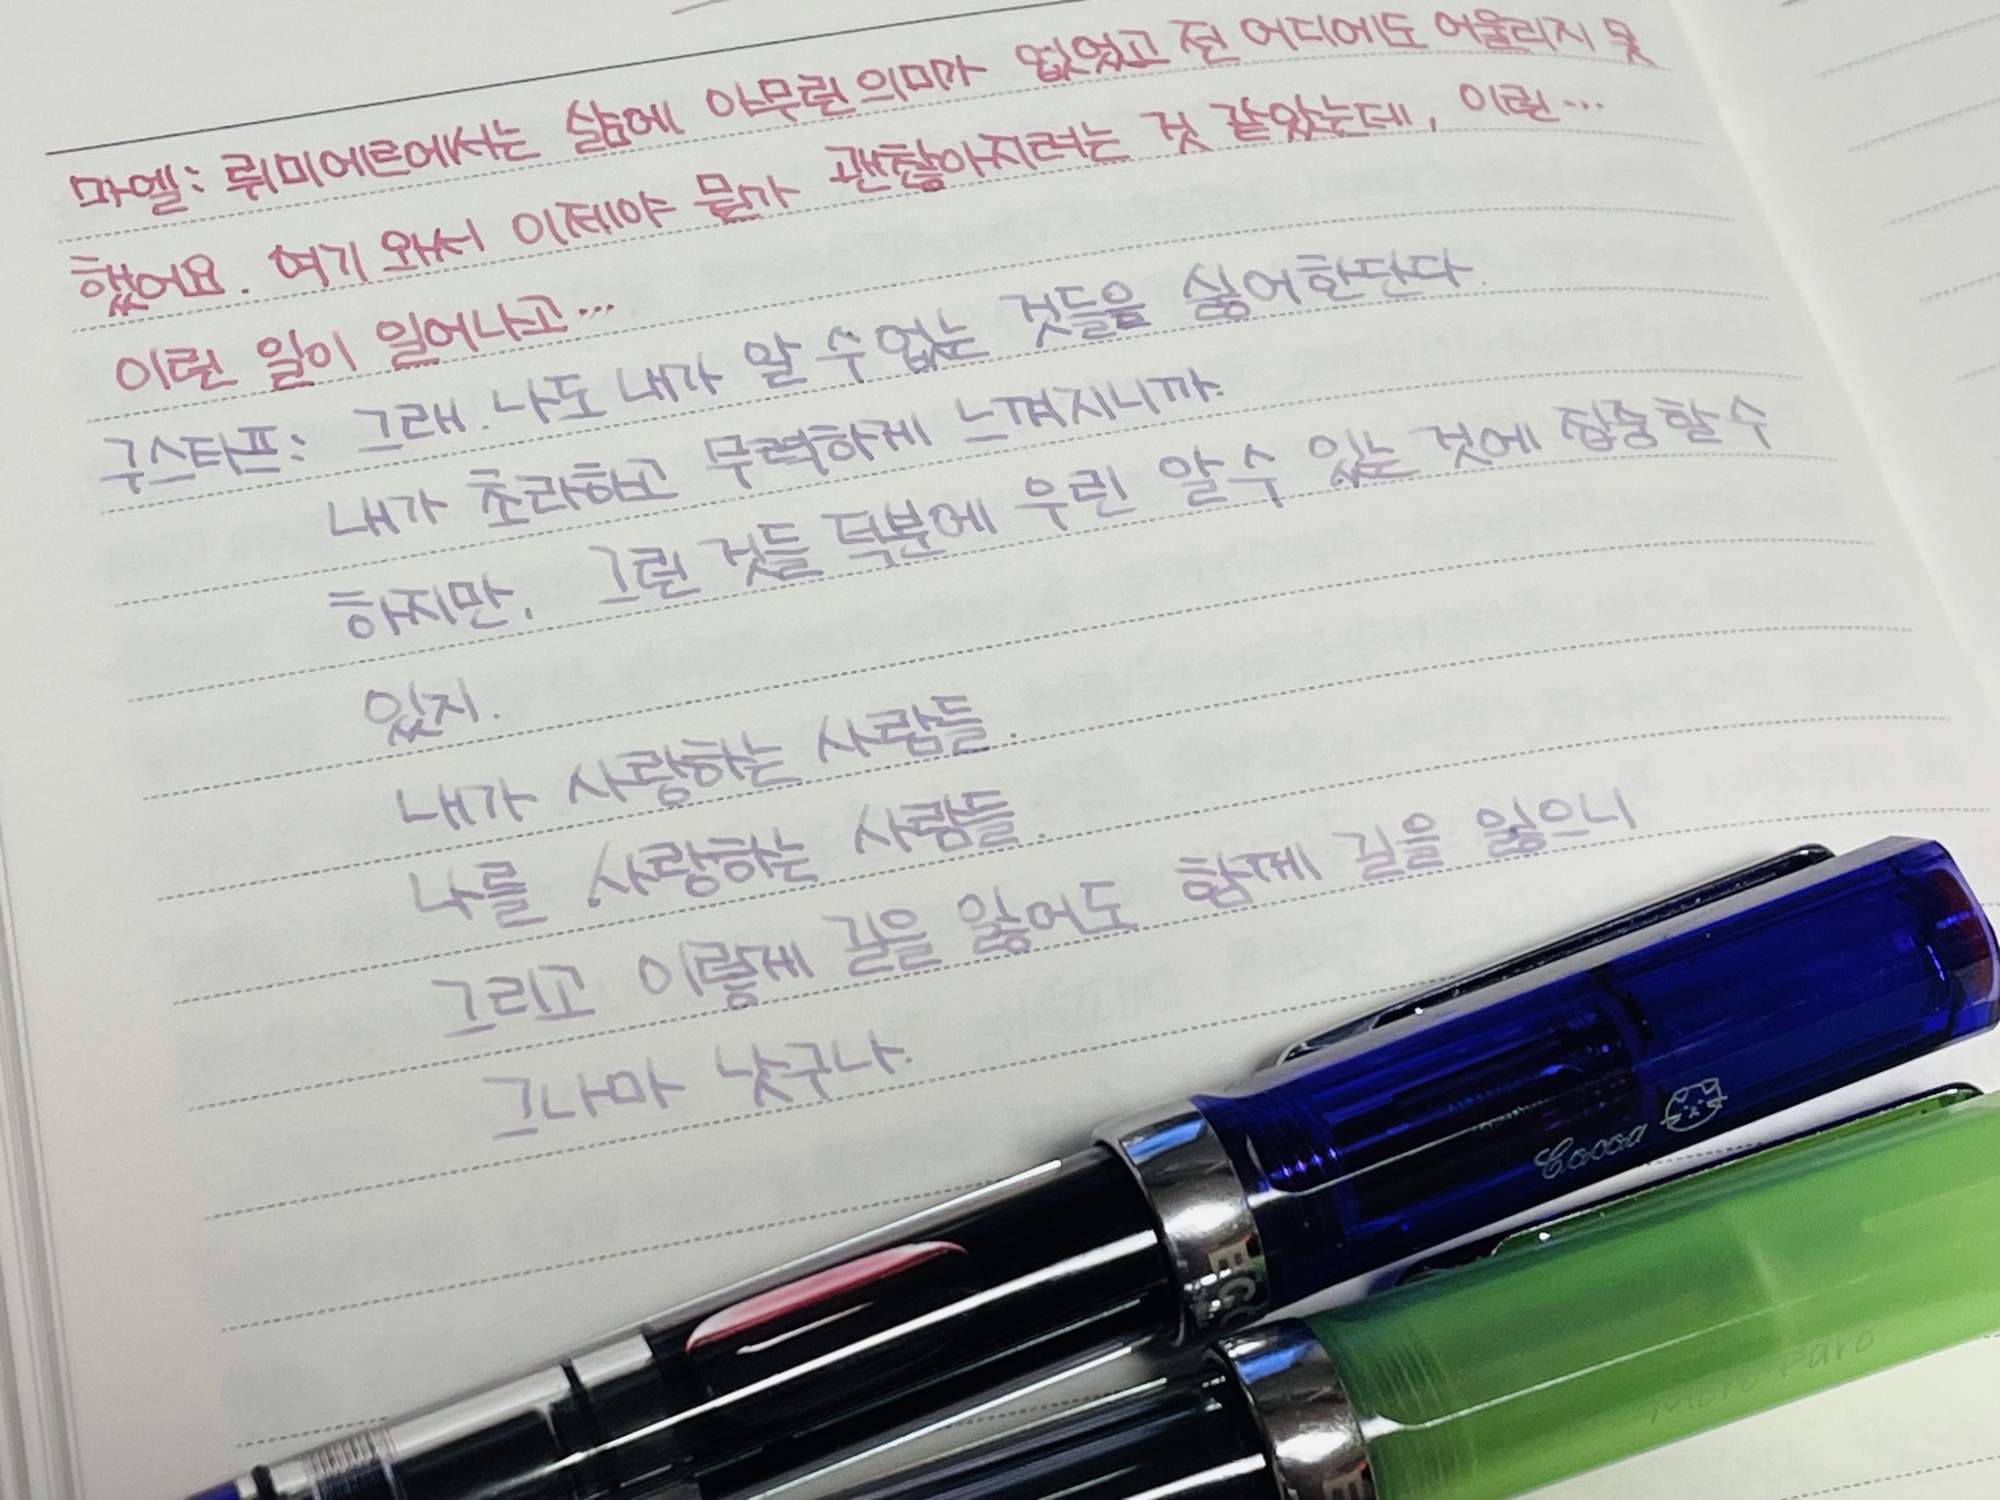 마엘: 뤼미에르에서는 삶에 아무런 의미가 없었고 전 어디에도 어울리지 못
했어요. 여기 와서 이제야 뭔가 괜찮아지려는 것 같았는데, 이런...
이런 일이 일어나고...
구스타프: 그래. 나도 내가 알 수 없는 것들을 싫어한단다.
내가 초라하고 무력하게 느껴지니까.
하지만, 그런 것들 덕분에 우린 알 수 있는 것에 집중할 수
있지.
내가 사랑하는 사람들.
나를 사랑하는 사람들.
그리고 이렇게 길을 잃어도 함께 길을 잃으니
그나마 낫구나.
Cocoa
Micro Paro